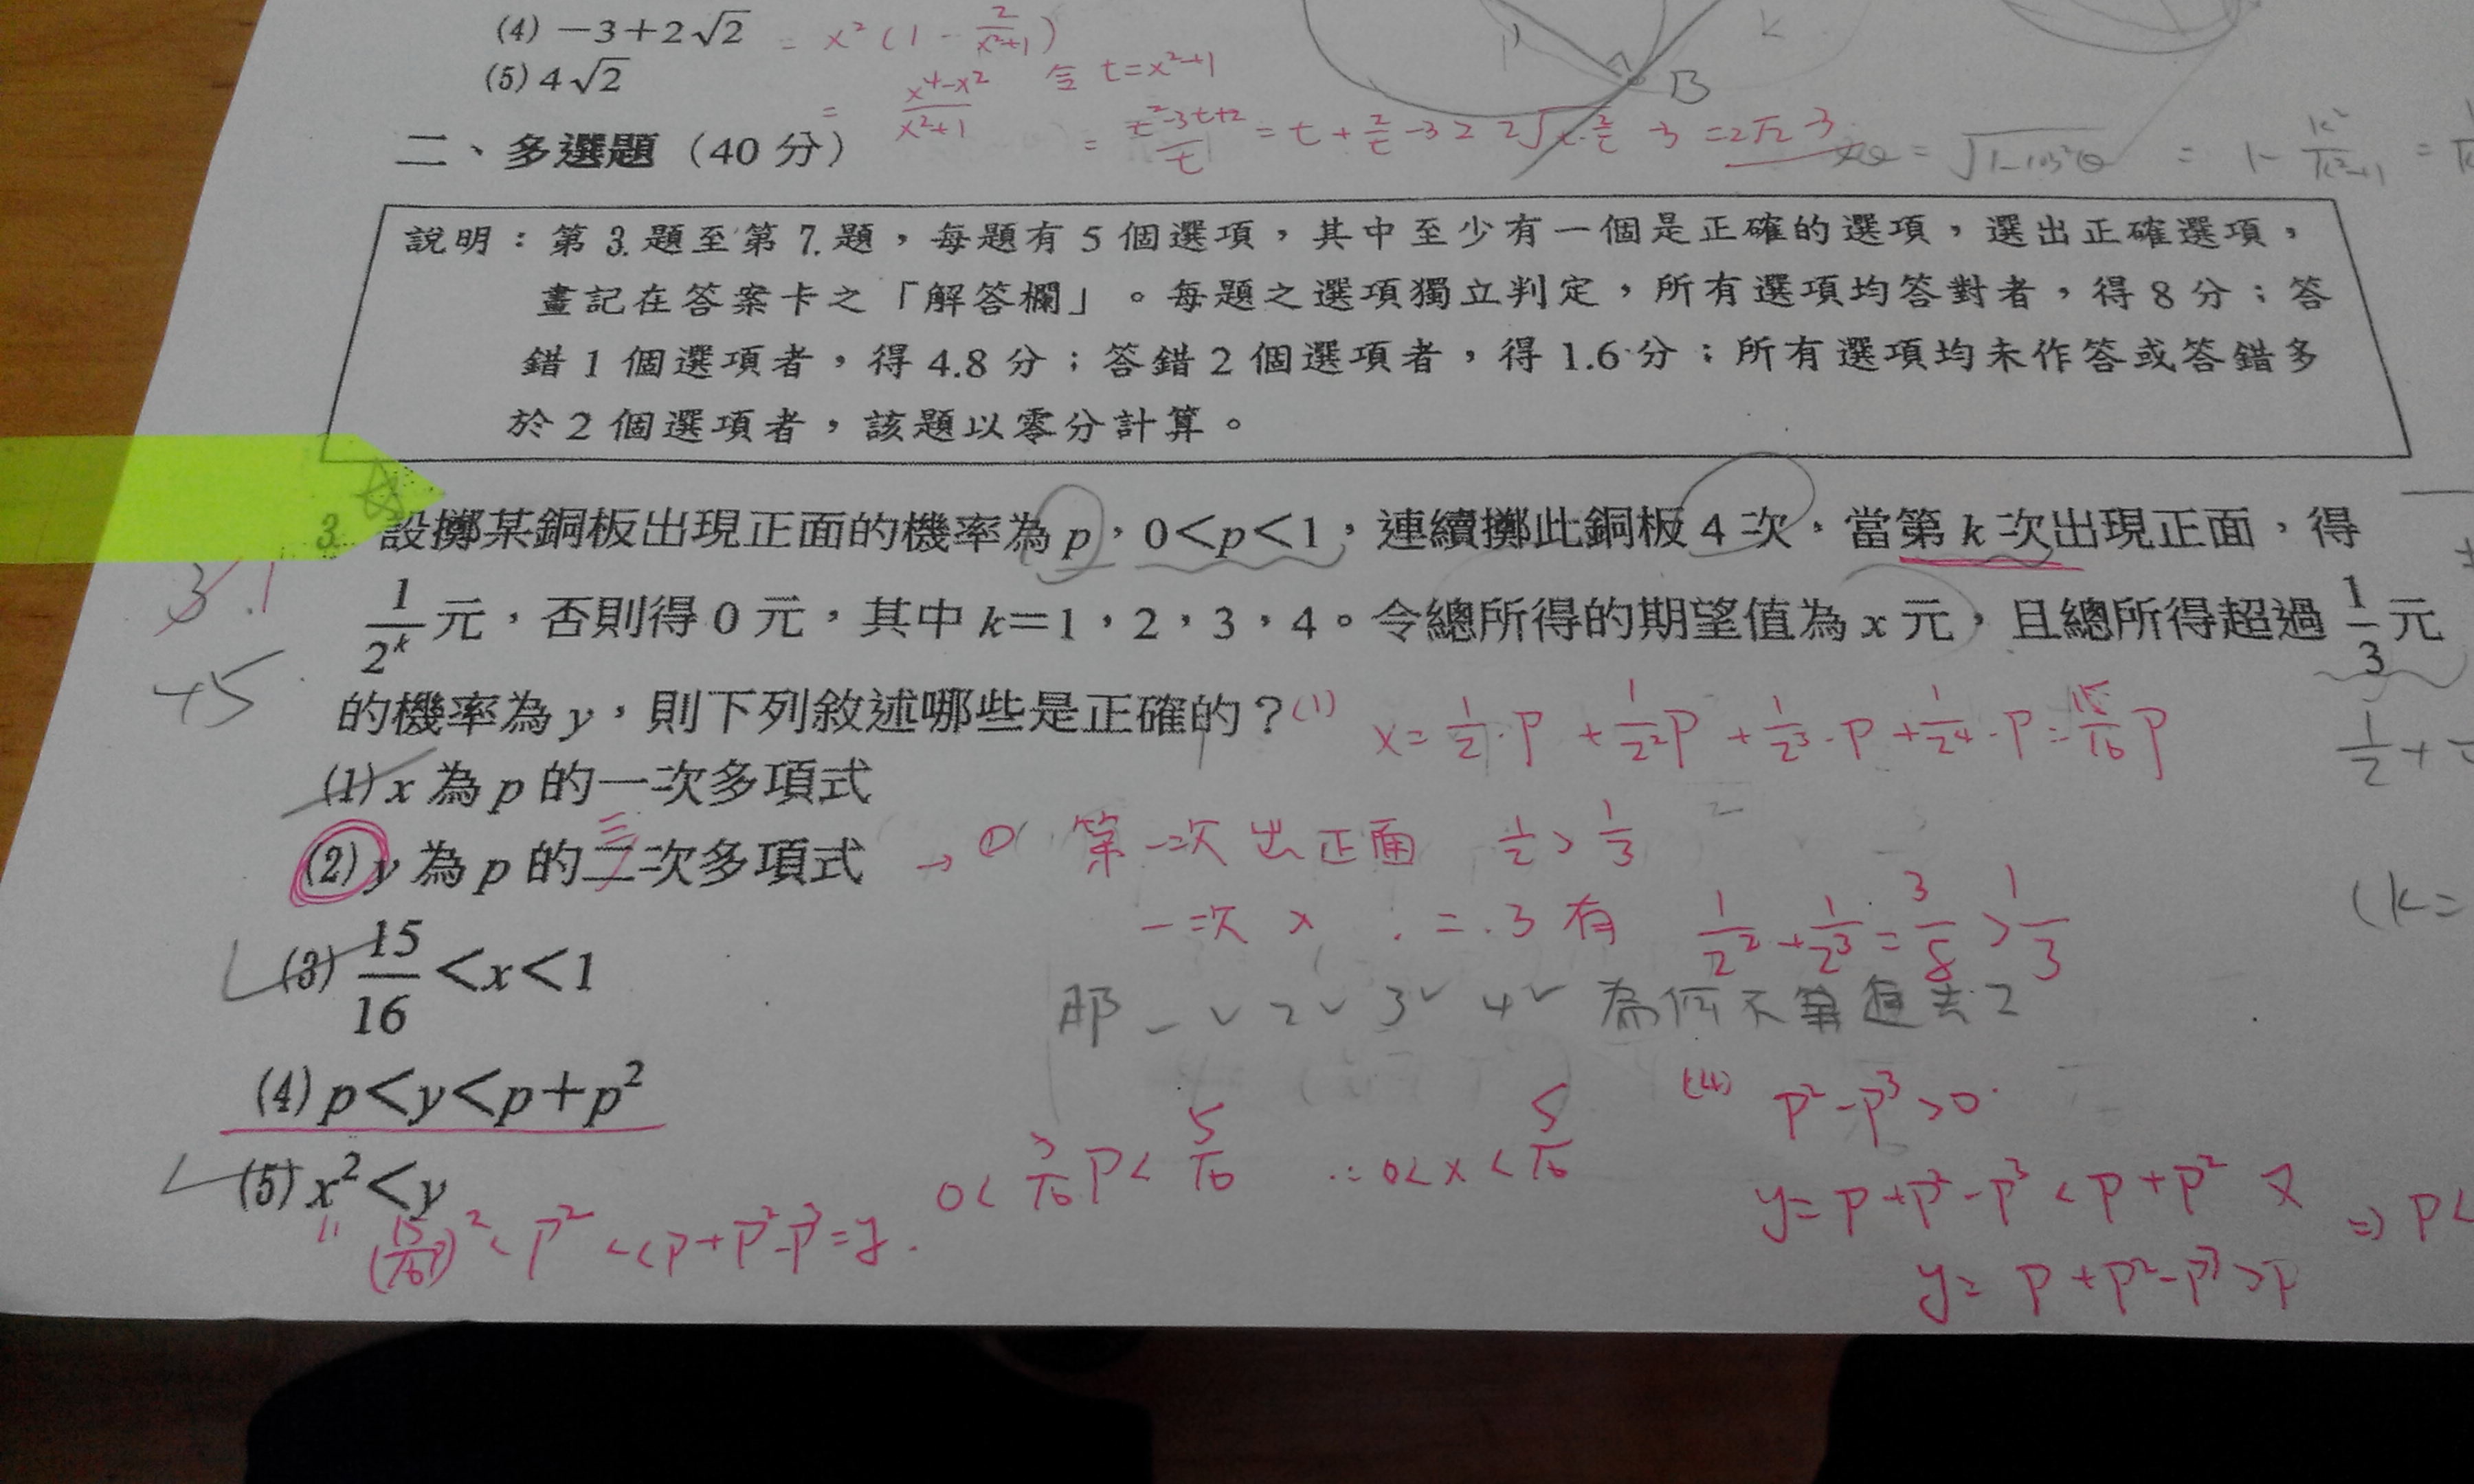 (4) －3＋2√2 = x²(1 - 2/(x²+1))
(5) 4√2
= (x⁴-x²)/(x²+1) 令 t=x²+1
= (t²-3t+2)/t = t + 2/t -3 ≥ 2√(t·2/t) -3 = 2√2 -3
B
k
二、多選題（40 分）
說明：第 3. 題至第 7. 題，每題有 5 個選項，其中至少有一個是正確的選項，選出正確選項，
畫記在答案卡之「解答欄」。每題之選項獨立判定，所有選項均答對者，得 8 分；答
錯 1 個選項者，得 4.8 分；答錯 2 個選項者，得 1.6 分；所有選項均未作答或答錯多
於 2 個選項者，該題以零分計算。
3. 設擲某銅板出現正面的機率為 p，0＜p＜1，連續擲此銅板 4 次，當第 k 次出現正面，得
1/2ᵏ 元，否則得 0 元，其中 k＝1，2，3，4。令總所得的期望值為 x 元，且總所得超過 1/3 元
的機率為 y，則下列敘述哪些是正確的？
(1) x = 1/2·p + 1/2² p + 1/2³·p + 1/2⁴·p = 15/16 p
(1) x 為 p 的一次多項式
(2) y 為 p 的二次多項式
三
→ ① 第一次出正面 1/2 > 1/3
一次 x 二.3 有 1/2² + 1/2³ = 3/8 > 1/3
(3) 15/16＜x＜1
那 一 ✓ 2 ✓ 3 ✓ 4 ✓ 為何不算進去?
(4) p＜y＜p＋p²
(4) p²-p³>0
(5) x²＜y
y= p+p²-p³ < p+p² 又
y= p+p²-p³>p
(15/16 p)² < p² < p+p²-p³=y.